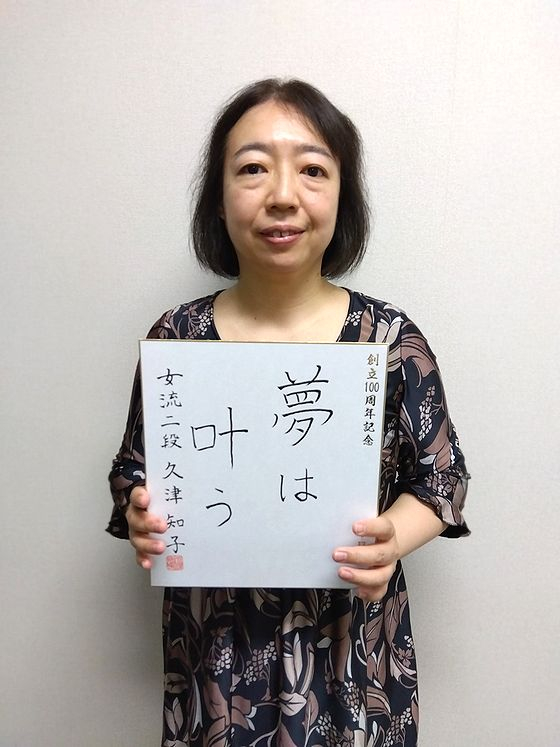 創立100周年記念
夢は
叶う
女流二段 久津 知子